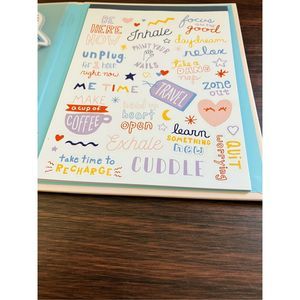 BE
HERE
NOW
Inhale
focus
on the
good
PAINT YOUR
NAILS
daydream
unplug
for 1 hour
right now
take a
DANG
nap
relax
ME TIME
TRAVEL
zone
out
MAKE
a cup of
COFFEE
heart
open
learn
SOMETHING
new
QUIT
worrying
Exhale
take time to
RECHARGE
CUDDLE